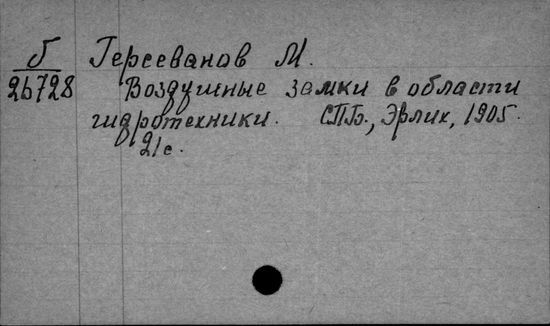 Б Герсеванов М.
26728 Воздушные замки в области
гидротехники. СПб., Эрлих, 1905.
21с.